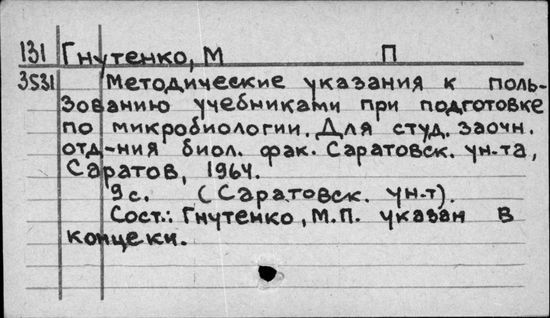 131 Гнутенко, М П
3531 Методические указания к поль-
зованию учебниками при подготовке
по микробиологии. Для студ. заочн.
отд-ния биол. фак. Саратовск. ун-та,
Саратов, 1964.
9 с. (Саратовск. ун-т).
Сост.: Гнутенко, М.П. указан в
конце ки.